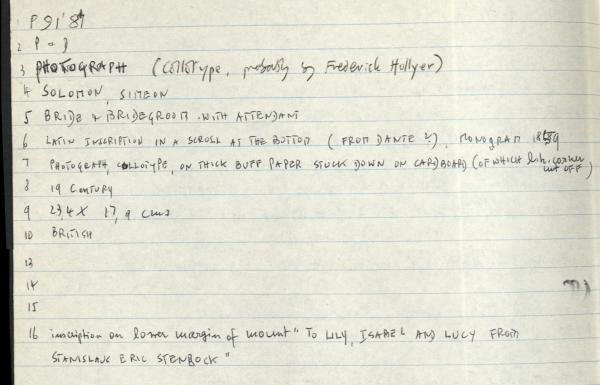 1 P91'84
2 P = J
3 PHOTOGRAPH (Collotype, probably by Frederick Hollyer)
4 SOLOMON, SIMEON
5 BRIDE & BRIDEGROOM WITH ATTENDANT
6 LATIN INSCRIPTION IN A SCROLL AT THE BOTTOM (FROM DANTE?), MONOGRAM 1859
7 PHOTOGRAPH, COLLOTYPE, ON THICK BUFF PAPER STUCK DOWN ON CARDBOARD (OF WHICH l.h. corner
cut OFF)
8 19 CENTURY
9 23,4 X 17,9 cms
10 BRITISH
13
14
15
16 inscription on lower margin of mount "TO LILY, ISABEL AND LUCY FROM
STANISLAUS ERIC STENBOCK"